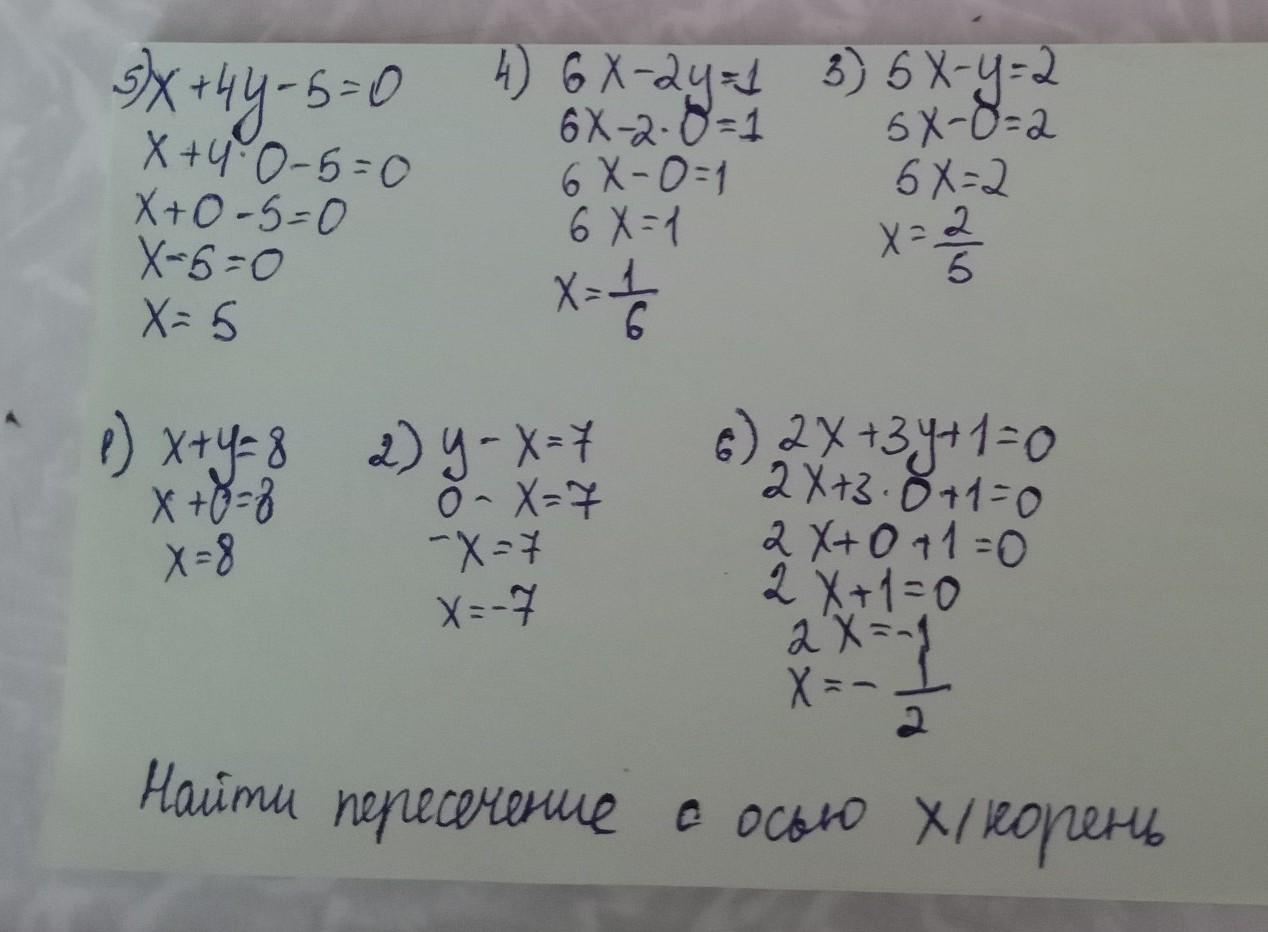 5) x+4y-5=0
x+4·0-5=0
x+0-5=0
x-5=0
x=5
4) 6x-2y=1
6x-2·0=1
6x-0=1
6x=1
x=1/6
3) 5x-y=2
5x-0=2
5x=2
x=2/5
1) x+y=8
x+0=8
x=8
2) y-x=7
0-x=7
-x=7
x=-7
6) 2x+3y+1=0
2x+3·0+1=0
2x+0+1=0
2x+1=0
2x=-1
x=-1/2
Найти пересечение с осью x/корень